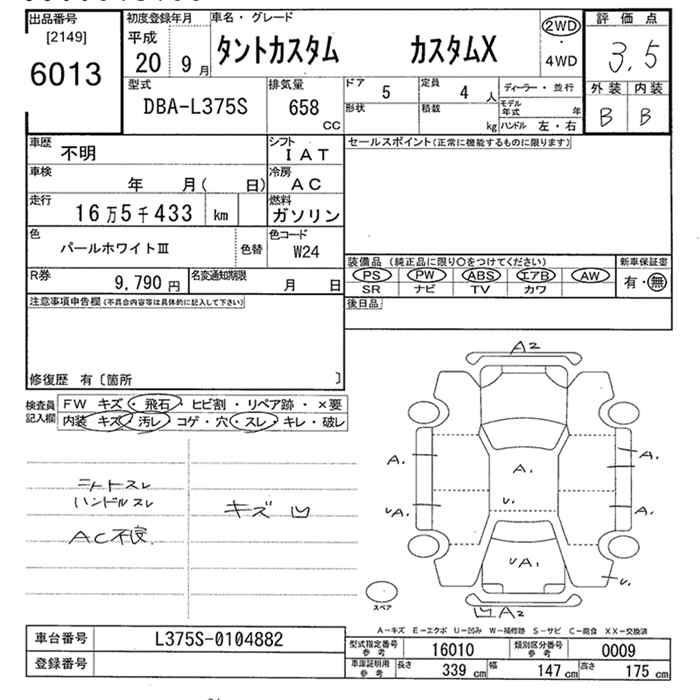 出品番号
[2149]
6013
初度登録年月
平成
20 9月
車名・グレード
タントカスタム カスタムX
2WD
・
4WD
評価点
3.5
外装 内装
B B
型式
DBA-L375S
排気量
658
CC
ドア
5
定員
4人
形状
積載
kg
ディーラー・並行
モデル年式 年
ハンドル 左・右
車歴
不明
シフト
IAT
車検
年 月( 日)
冷房
AC
走行
16万5千433 km
燃料
ガソリン
色
パールホワイトⅢ
色替
色コード
W24
R券
9,790円
名変通知期限
月 日
セールスポイント(正常に機能するものに限ります)
装備品 (純正品に限り○をつけてください)
PS PW ABS エアB AW
SR ナビ TV カワ
新車保証書
有・無
後日品
注意事項申告欄(不具合内容等は具体的に記入して下さい)
修復歴 有〔箇所 〕
検査員記入欄
FW キズ・飛石・ヒビ割・リペア跡・×要
内装 キズ・汚レ・コゲ・穴・スレ・キレ・破レ
シートスレ
ハンドルスレ
AC不良
キズ 凹
A2
A.
A.
A.
v.
vA.
A.
vA1
v.
凹A2
スペア
A-キズ E-エクボ U-凹み W-補修跡 S-サビ C-腐食 XX-交換済
車台番号
L375S-0104882
登録番号
型式指定番号 参考
16010
類別区分番号 参考
0009
車庫証明用 参考
長さ 339 cm 幅 147 cm 高さ 175 cm